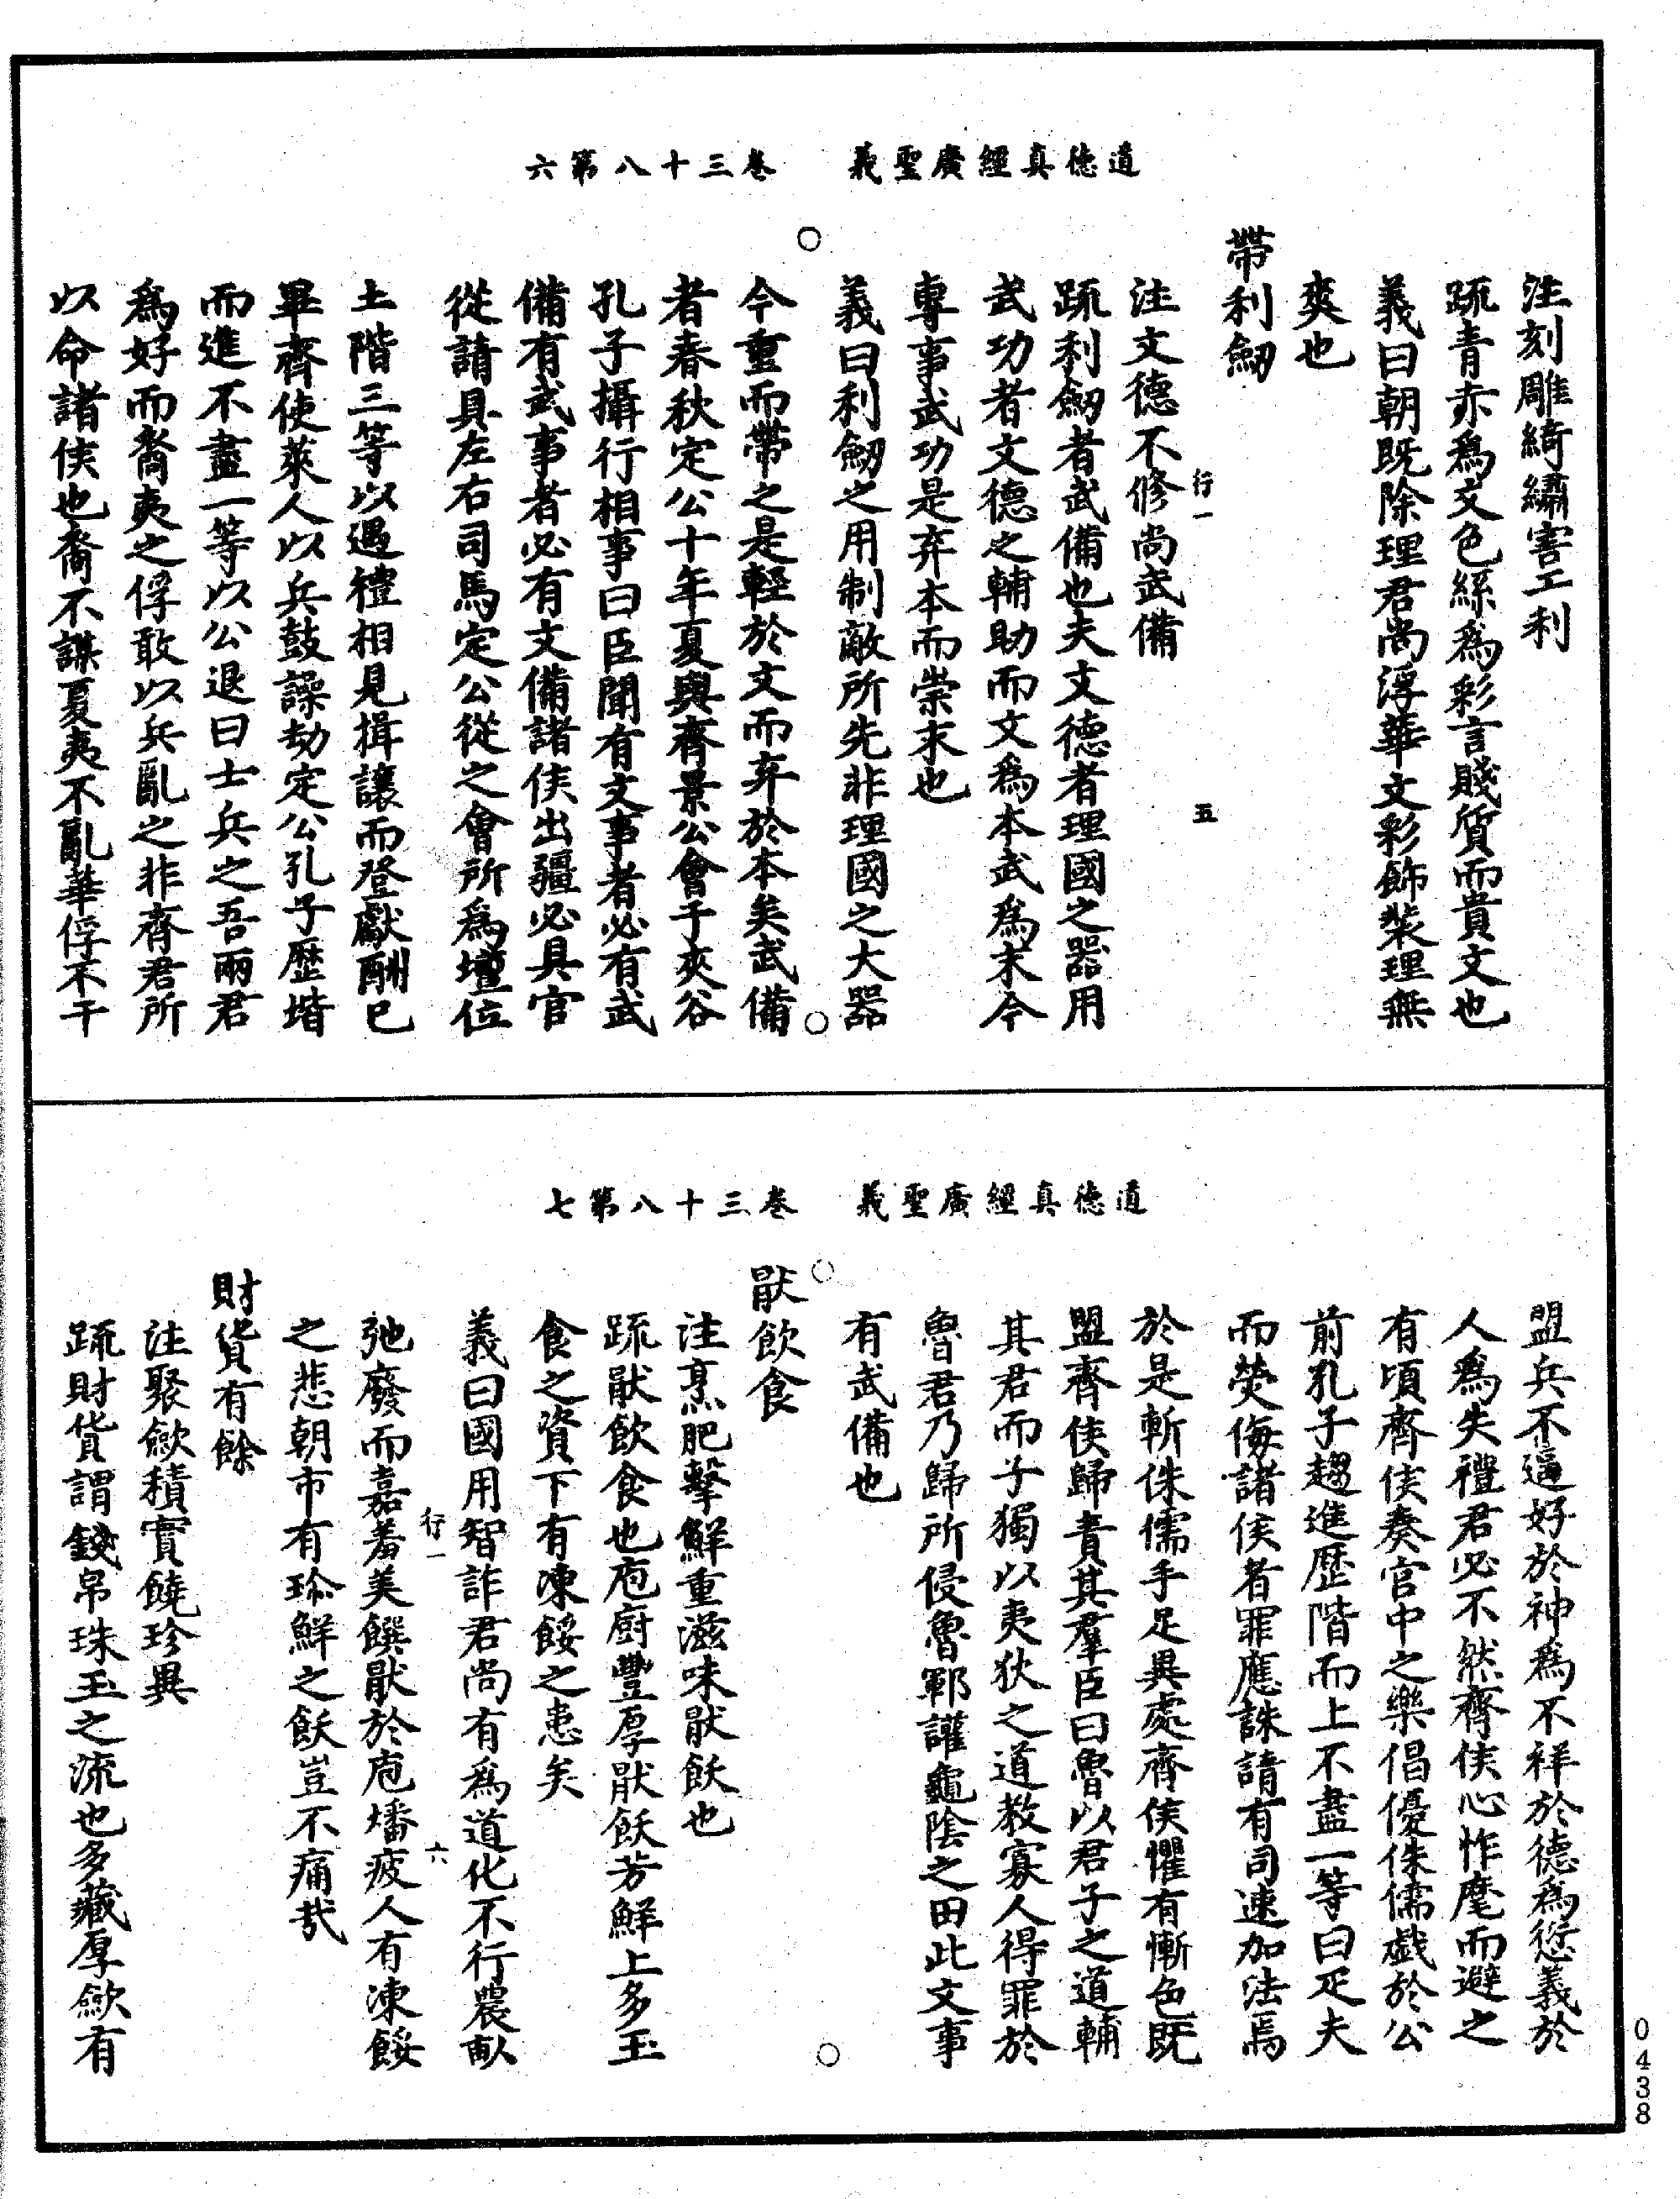 道德真經廣聖義　卷三十八第六
注刻雕綺繡害工利
疏青赤為文色絲為彩言賤質而貴文也
義曰朝既除理君尚浮華文彩飾裝理無
爽也
帶利劒
注文德不修尚武備
疏利劒者武備也夫文德者理國之器用
武功者文德之輔助而文為本武為末今
專事武功是弃本而崇末也
義曰利劒之用制敵所先非理國之大器
今重而帶之是輕於文而弃於本矣武備
者春秋定公十年夏與齊景公會于夾谷
孔子攝行相事曰臣聞有文事者必有武
備有武事者必有文備諸侯出疆必具官
從請具左右司馬定公從之會所為壇位
土階三等以遇禮相見揖讓而登獻酬已
畢齊使萊人以兵鼓譟劫定公孔子歷堦
而進不盡一等以公退曰士兵之吾兩君
為好而裔夷之俘敢以兵亂之非齊君所
以命諸侯也裔不謀夏夷不亂華俘不干
行一
五
道德真經廣聖義　卷三十八第七
盟兵不逼好於神為不祥於德為愆義於
人為失禮君必不然齊侯心怍麾而避之
有頃齊侯奏宮中之樂倡優侏儒戲於公
前孔子趨進歷階而上不盡一等曰疋夫
而熒侮諸侯者罪應誅請有司速加法焉
於是斬侏儒手足異處齊侯懼有慚色既
盟齊侯歸責其羣臣曰魯以君子之道輔
其君而子獨以夷狄之道教寡人得罪於
魯君乃歸所侵魯鄆讙龜陰之田此文事
有武備也
猒飲食
注烹肥擊鮮重滋味猒飫也
疏猒飲食也庖廚豐厚猒飫芳鮮上多玉
食之資下有凍餒之患矣
義曰國用智詐君尚有為道化不行農畝
弛廢而嘉羞美饌猒於庖燔疲人有凍餒
之悲朝市有珎鮮之飫豈不痛㦲
財貨有餘
注聚歛積實饒珍異
疏財貨謂錢帛珠玉之流也多藏厚歛有
行一
六
0438